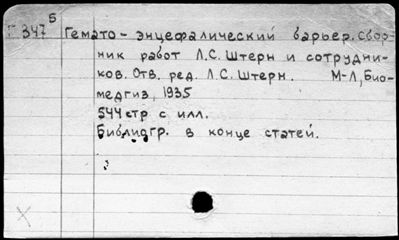 Г 347 5
Гемато-энцефалический барьер. Сбор-
ник работ Л.С. Штерн и сотрудни-
ков. Отв. ред. Л.С. Штерн. М-Л, Био-
медгиз, 1935
544 стр с илл.
Библиогр. в конце статей.